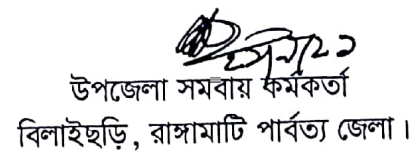 উপজেলা সমবায় কর্মকর্তা
বিলাইছড়ি, রাঙ্গামাটি পার্বত্য জেলা।